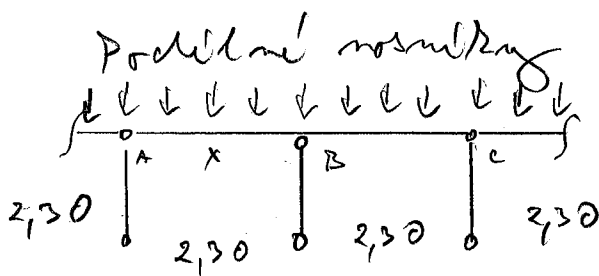 Podélné nosníky
A x B C
2,30 2,30 2,30 2,30